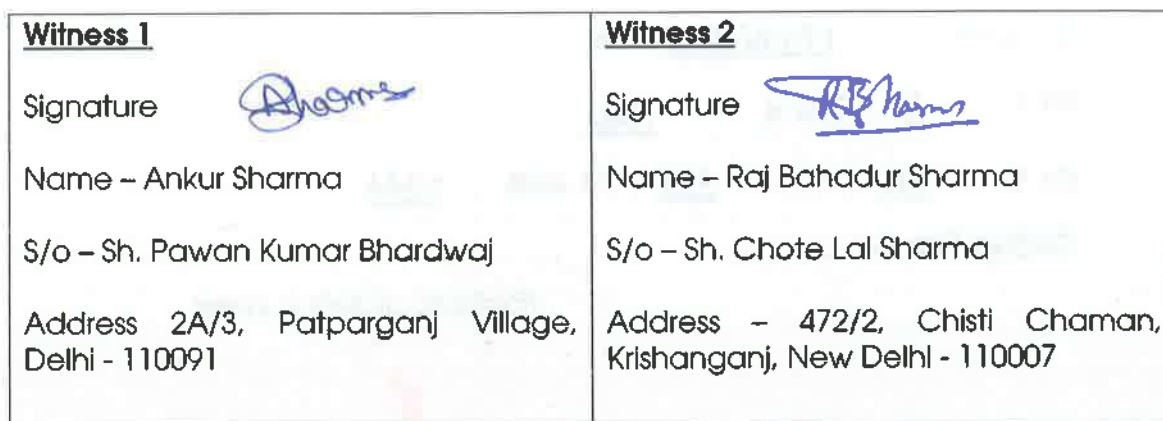 Witness 1
Signature
Name – Ankur Sharma
S/o – Sh. Pawan Kumar Bhardwaj
Address 2A/3, Patparganj Village,
Delhi - 110091
Witness 2
Signature
Name – Raj Bahadur Sharma
S/o – Sh. Chote Lal Sharma
Address – 472/2, Chisti Chaman,
Krishanganj, New Delhi - 110007